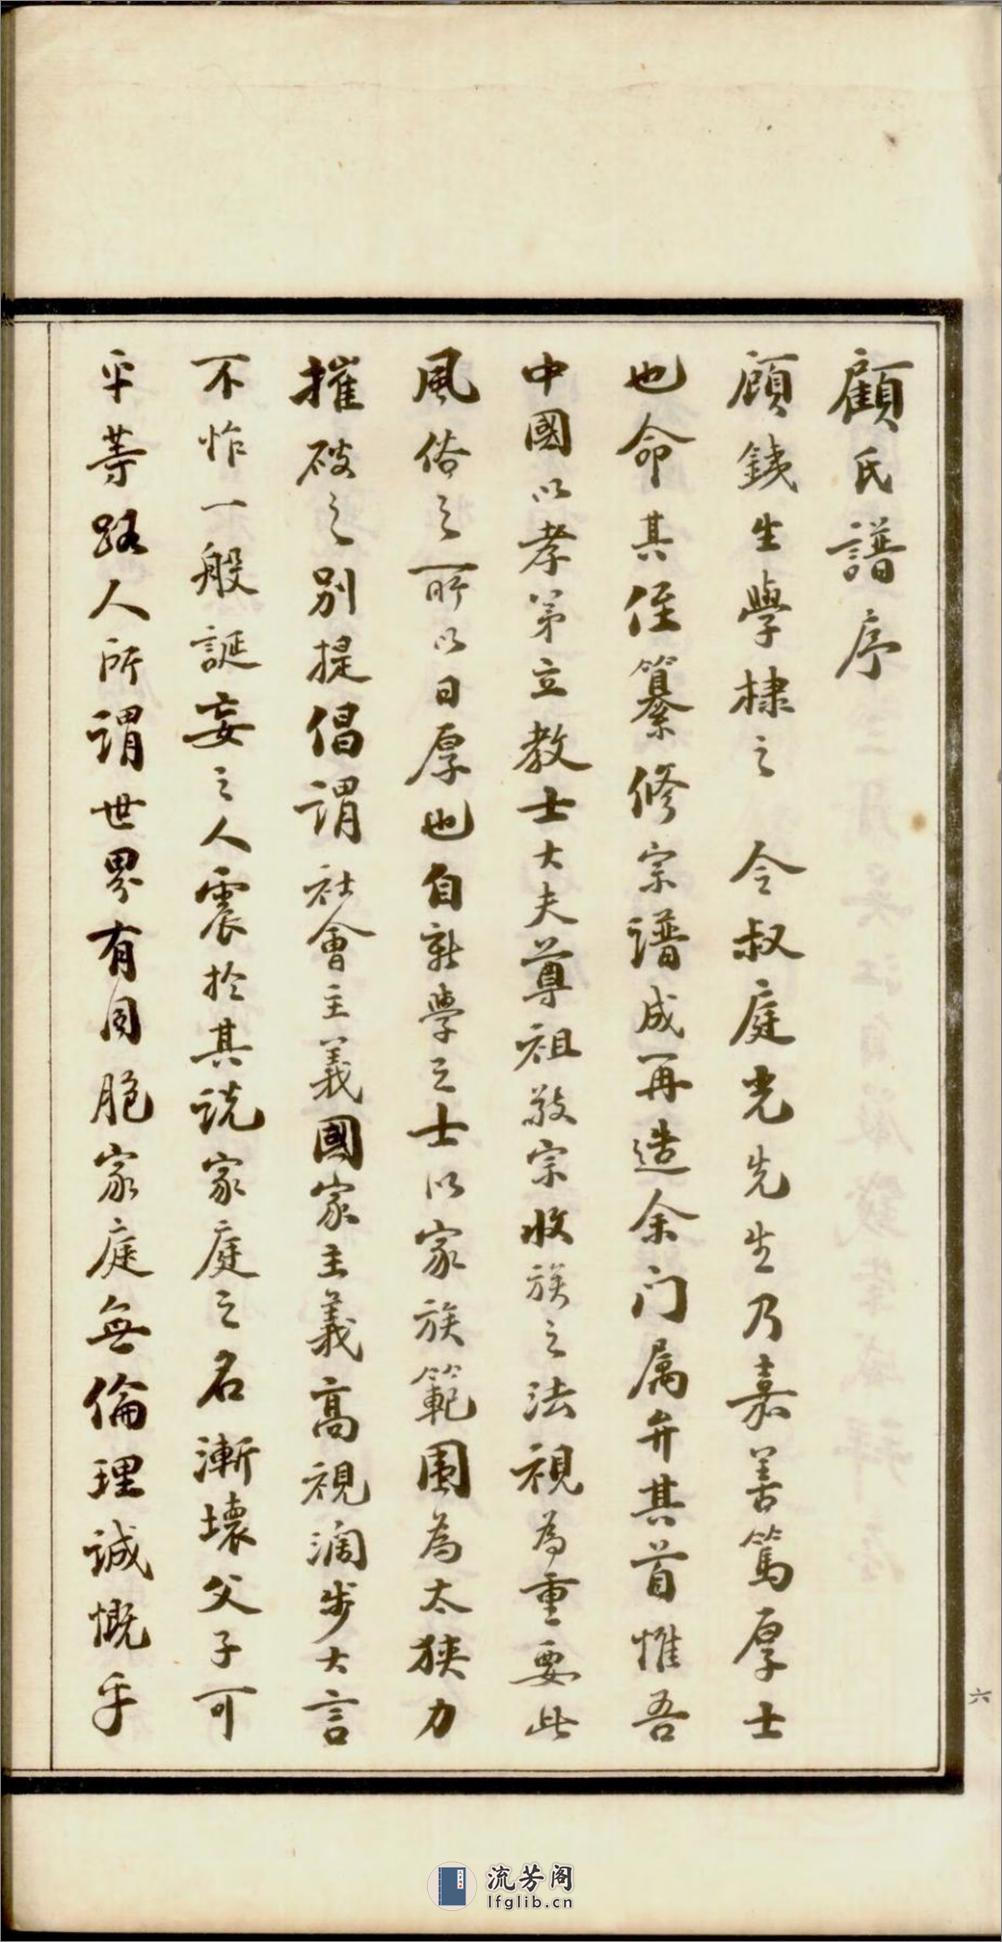 顧氏譜序
顧銕生學棣之　令叔庭光先生乃嘉善篤厚士
也命其侄纂修宗譜成再造余门属弁其首惟吾
中國以孝第立教士大夫尊祖敬宗收族之法視為重要此
風俗之所以日厚也自新學之士以家族範圍為太狹力
摧破之别提倡謂社會主義國家主義高視濶步大言
不怍一般誕妄之人震於其説家庭之名漸壞父子可
平等路人所謂世界有同胞家庭無倫理誠慨乎
六
流芳阁
lfglib.cn